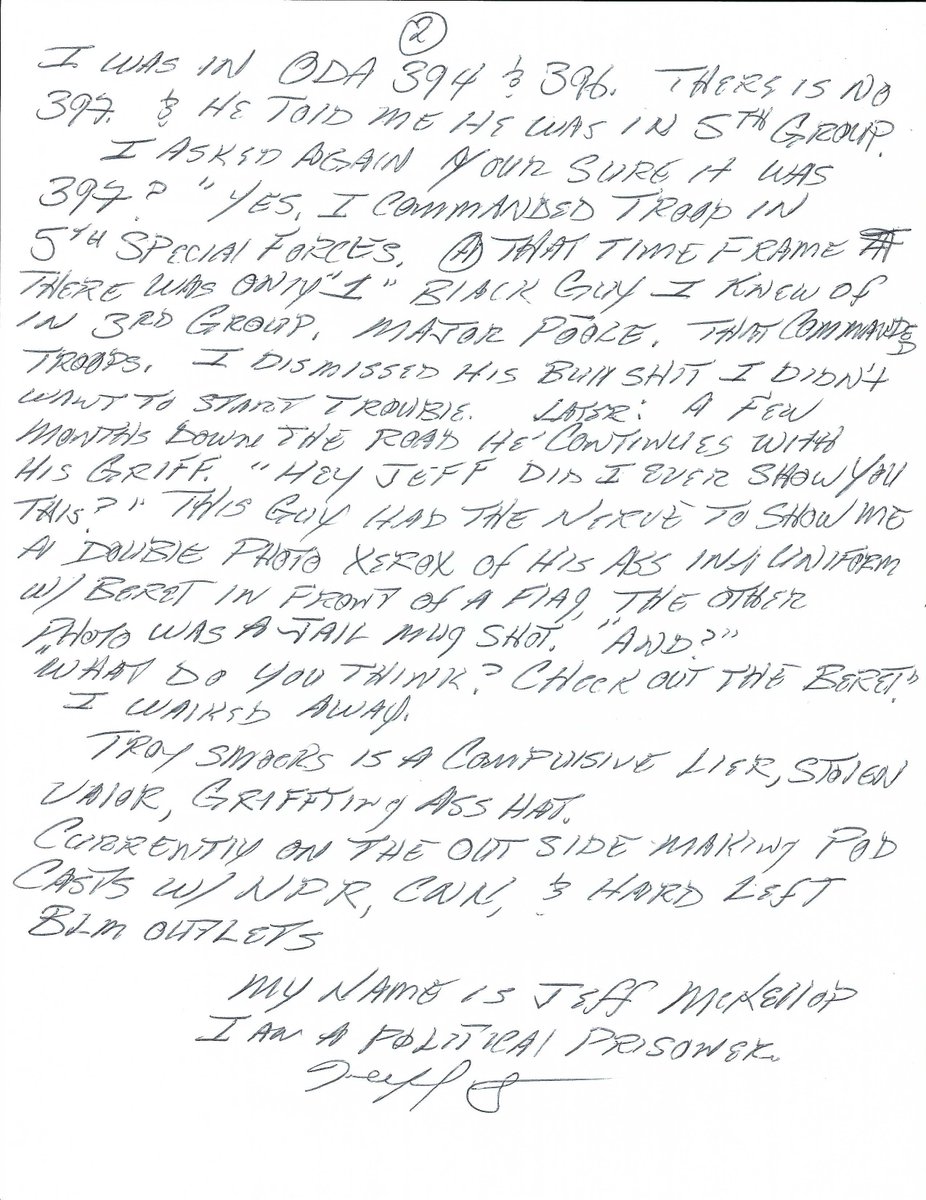 2
I WAS IN ODA 394 & 396. THERE IS NO
397. & HE TOLD ME HE WAS IN 5TH GROUP.
I ASKED AGAIN YOUR SURE IT WAS
397? "YES, I COMMANDED TROOP IN
5TH SPECIAL FORCES. A THAT TIME FRAME
THERE WAS ONLY "1" BLACK GUY I KNEW OF
IN 3RD GROUP. MAJOR POOLE. THAT COMMANDED
TROOPS. I DISMISSED HIS BULL SHIT I DIDN'T
WANT TO START TROUBLE. LATER: A FEW
MONTHS DOWN THE ROAD HE CONTINUES WITH
HIS GRIFF. "HEY JEFF DID I EVER SHOW YOU
THIS?" THIS GUY HAD THE NERVE TO SHOW ME
A DOUBLE PHOTO XEROX OF HIS ASS IN A UNIFORM
W/ BERET IN FRONT OF A FLAG, THE OTHER
PHOTO WAS A JAIL MUG SHOT. "AND?"
"WHAT DO YOU THINK? CHECK OUT THE BERET".
I WALKED AWAY.
TROY SMOCKS IS A COMPULSIVE LIER, STOLEN
VALOR, GRIFFTING ASS HAT.
CURRENTLY ON THE OUT SIDE MAKING POD
CASTS W/ NPR, CNN, & HARD LEFT
BLM OUTLETS
MY NAME IS JEFF MCKELLOP
I AM A POLITICAL PRISONER.